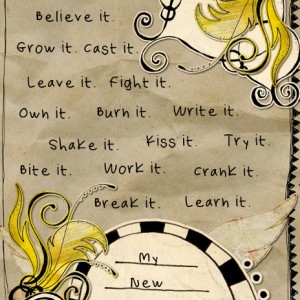 Believe it.
Grow it. Cast it.
Leave it. Fight it.
Own it. Burn it. Write it.
Shake it. Kiss it. Try it.
Bite it. Work it. Crank it.
Break it. Learn it.
My
New